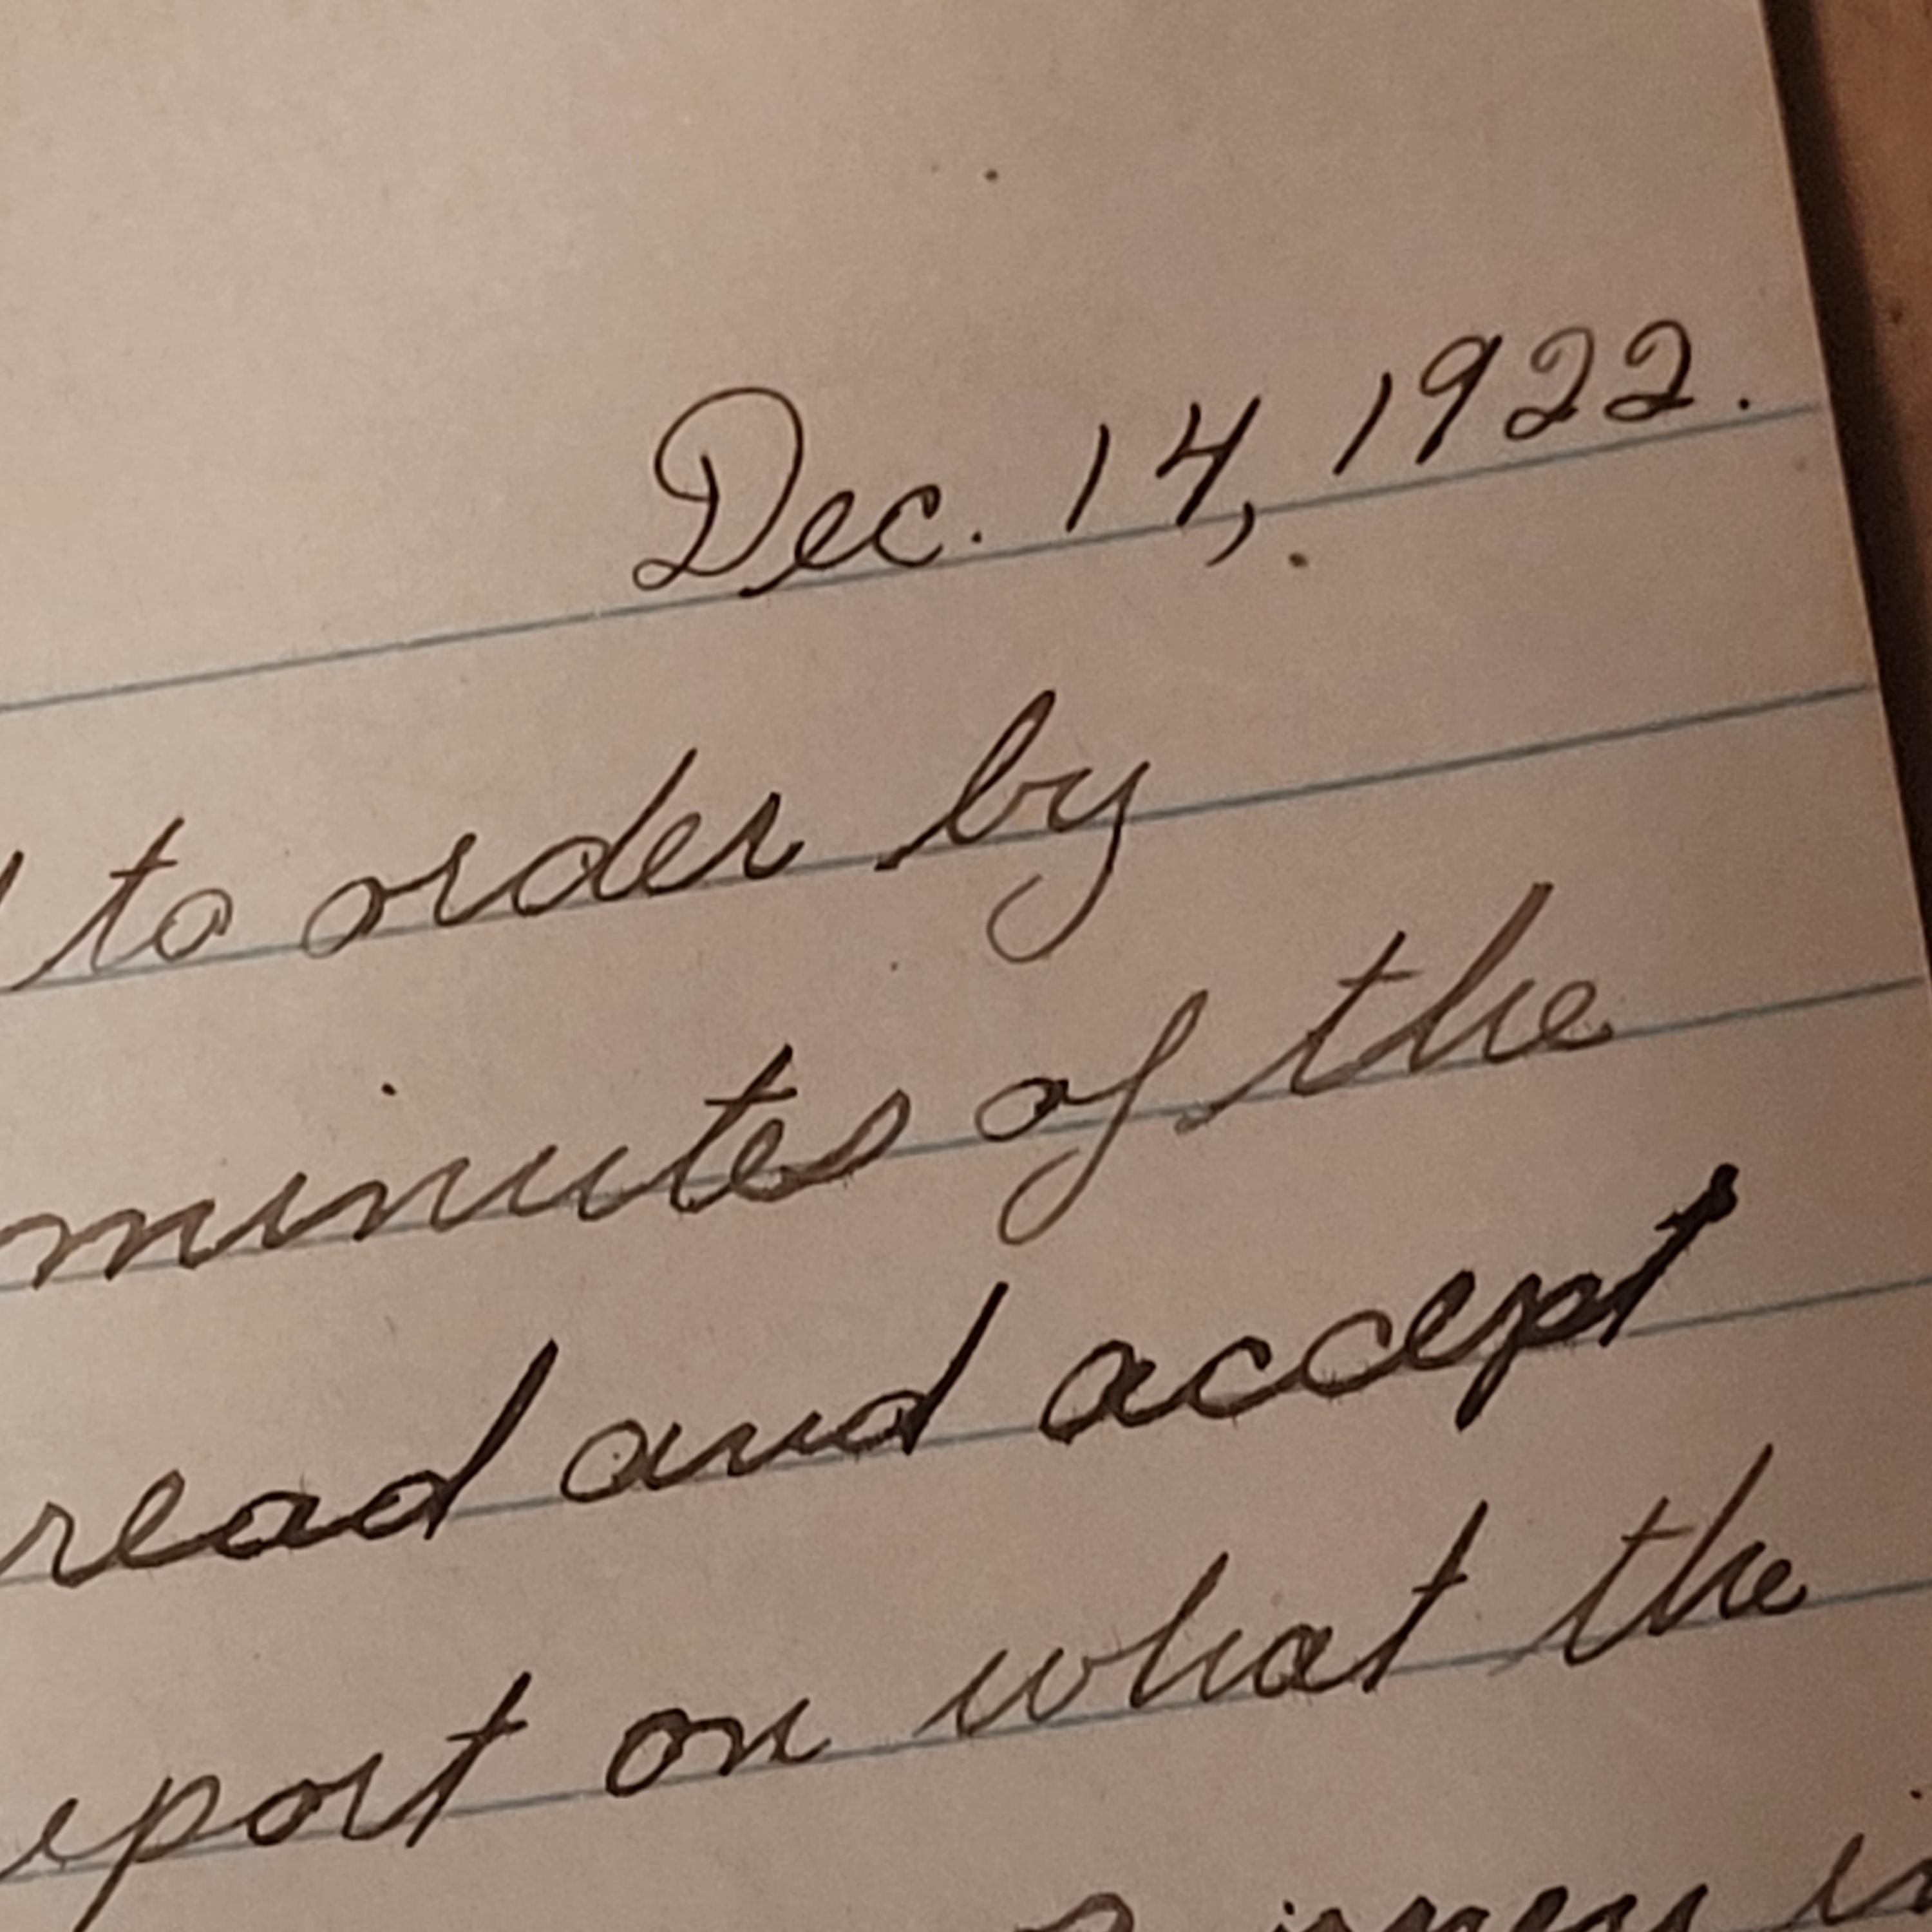 Dec. 14, 1922.
to order by
minutes of the
read and accept
eport on what the